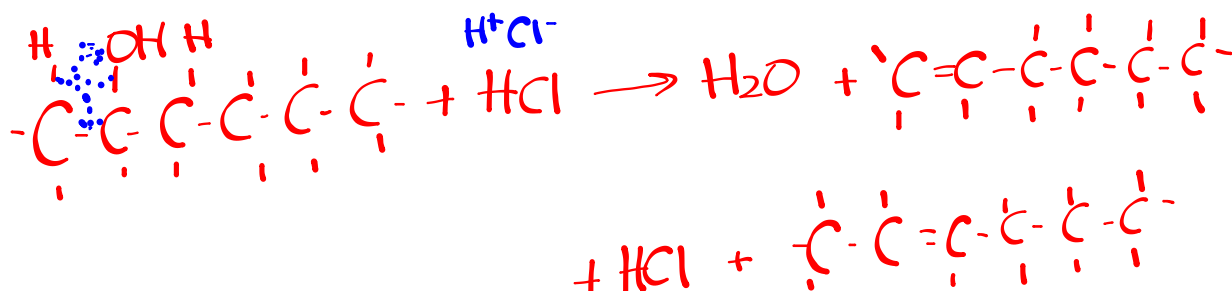 H OH H H⁺Cl⁻
-C-C-C-C-C-C- + HCl → H₂O + C=C-C-C-C-C-
+ HCl + -C-C=C-C-C-C-